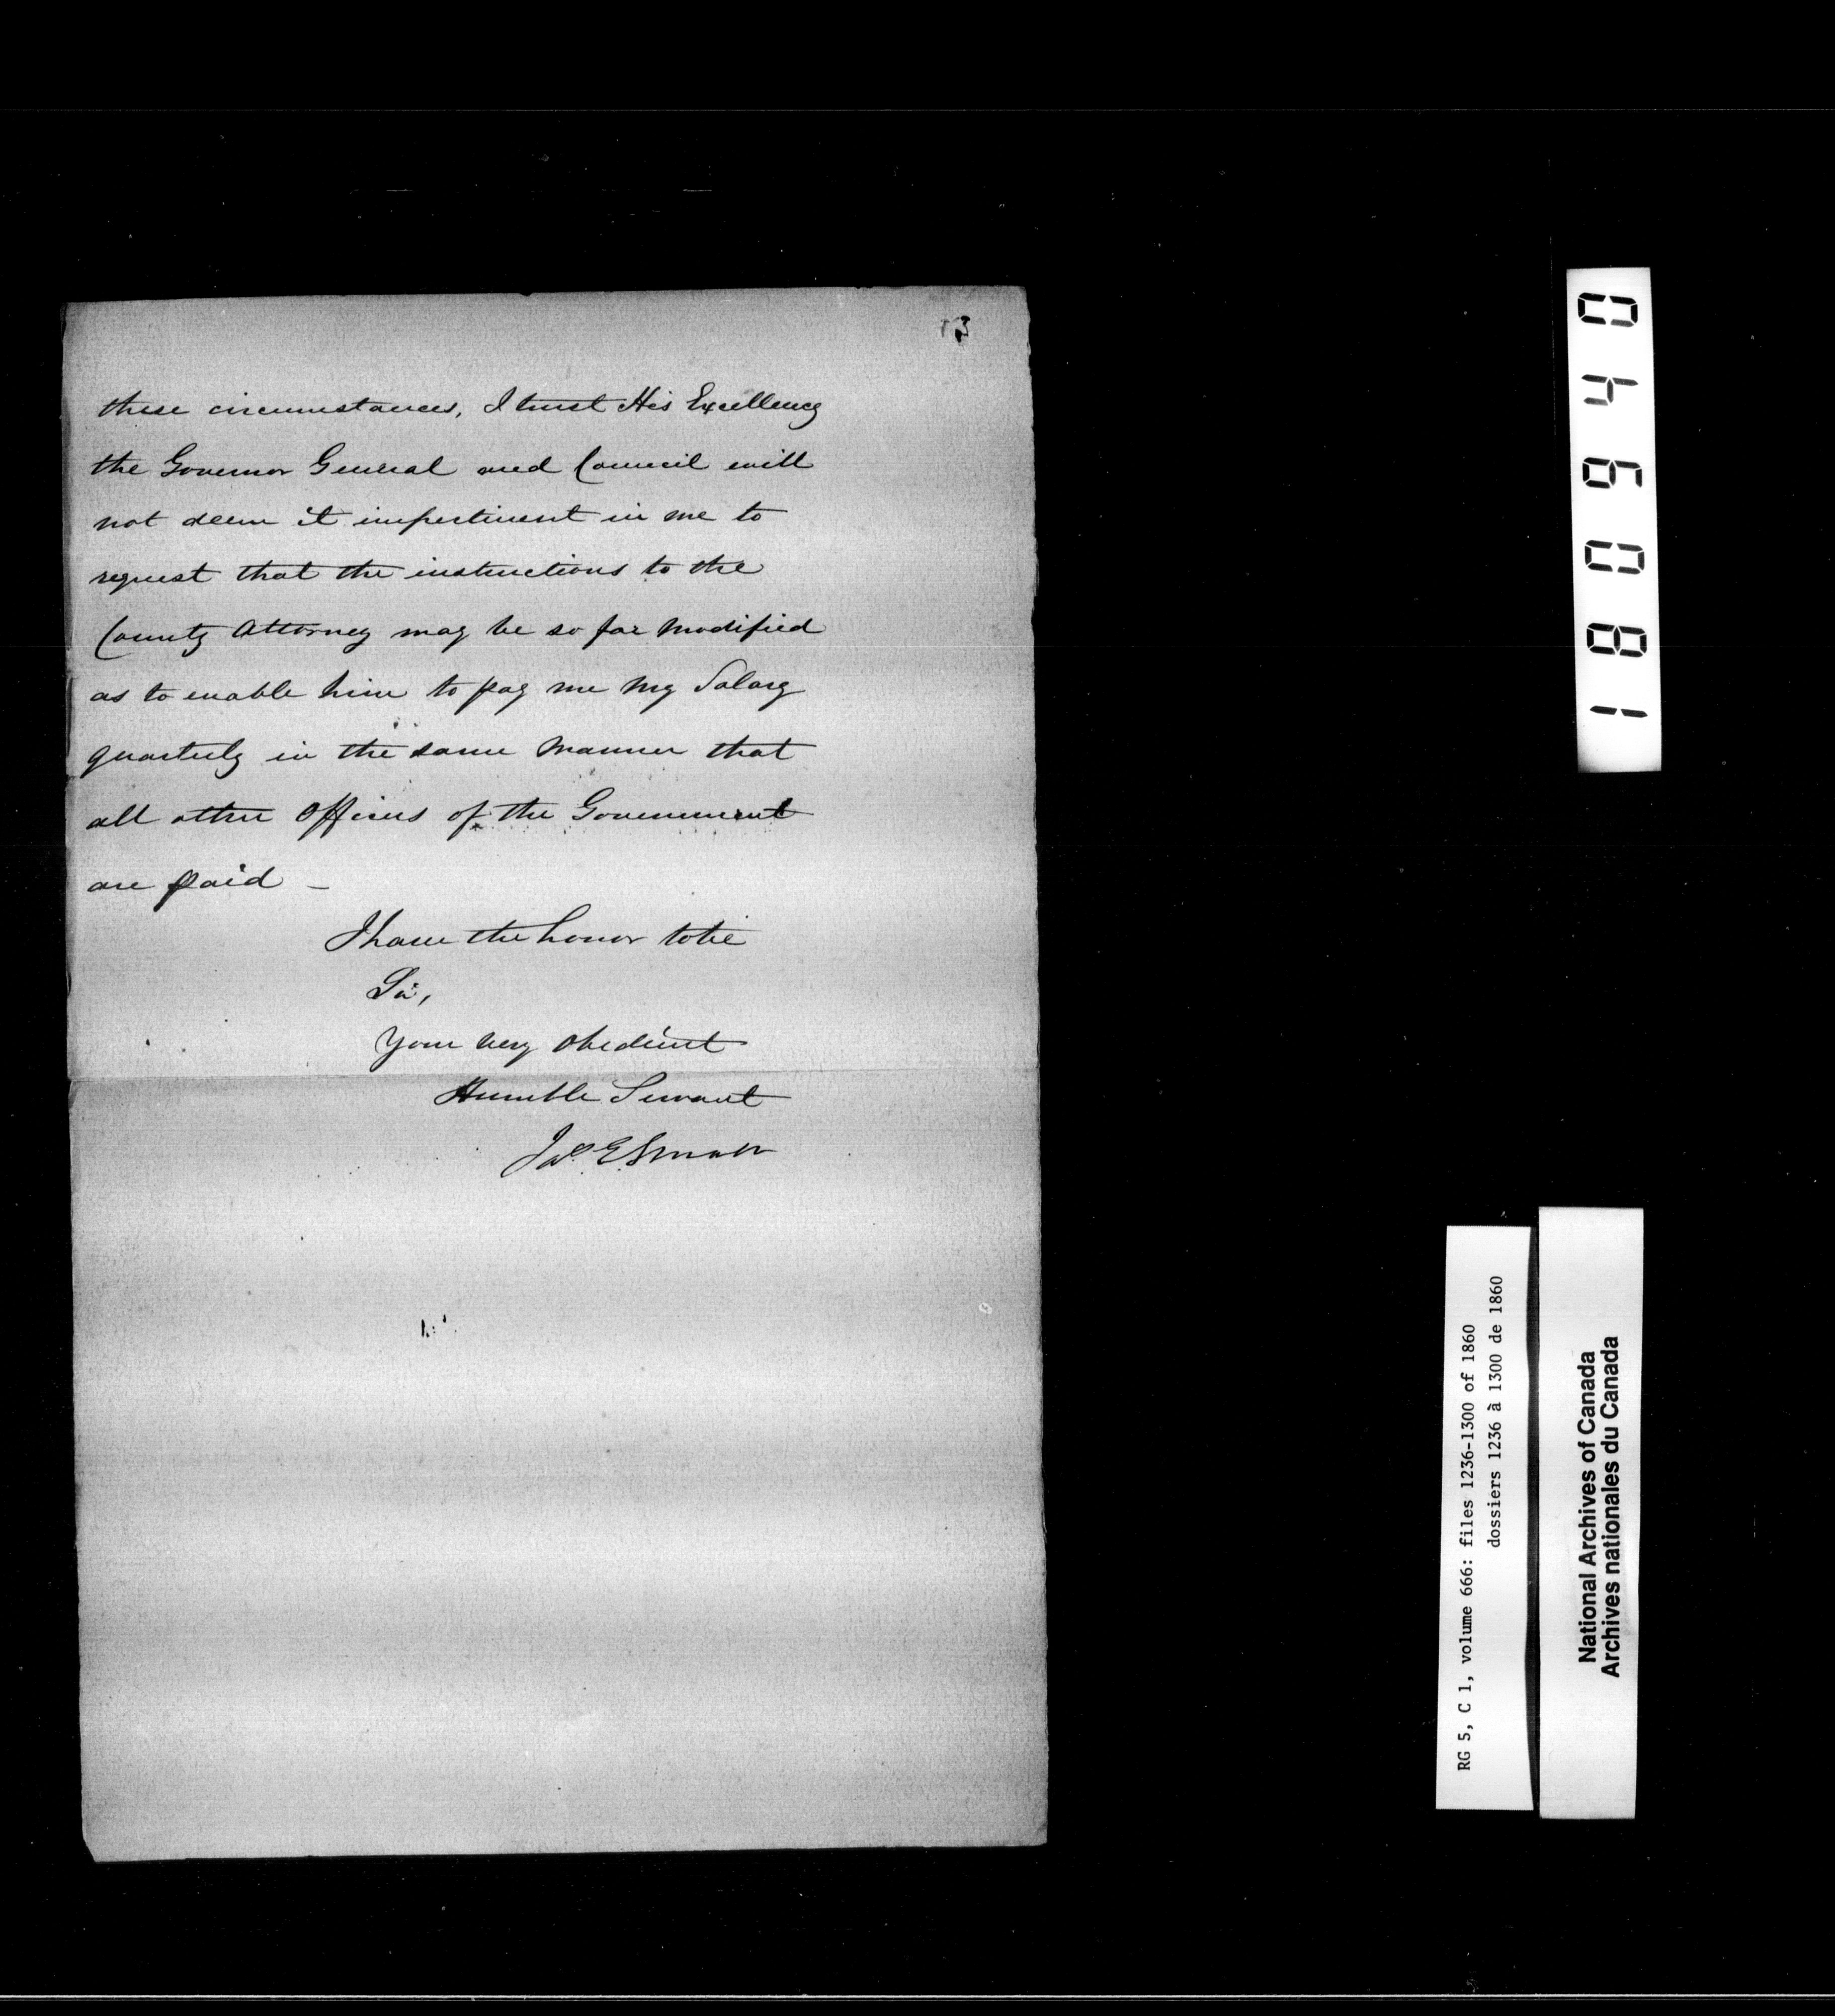 these circumstances, I trust His Excellency
the Governor General and Council will
not deem it impertinent in me to
request that the instructions to the
County Attorney may be so far modified
as to enable him to pay me my Salary
quarterly in the same manner that
all other Officers of the Government
are paid _
I have the honor to be
Sir,
Your very obedient
Humble Servant
Jas. E Small
180940
RG 5, C 1, volume 666: files 1236-1300 of 1860
dossiers 1236 à 1300 de 1860
National Archives of Canada
Archives nationales du Canada